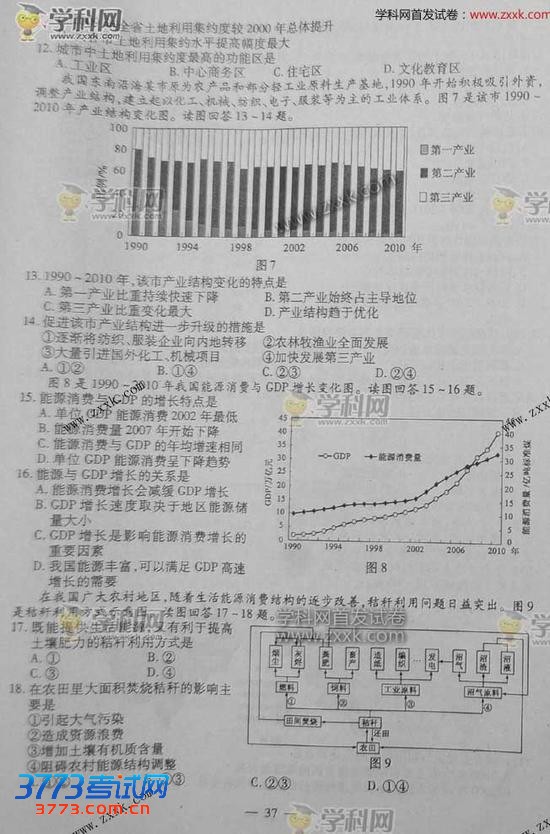 学科网首发试卷
www.zxxk.com
全省土地利用集约度较2000年总体提升
土地利用集约水平提高幅度最大
12. 城市中土地利用集约度最高的功能区是
A. 工业区 B. 中心商务区 C. 住宅区 D. 文化教育区
我国东南沿海某市原为农产品和部分轻工业原料生产基地,1990年开始积极吸引外资,
调整产业结构,建立起以化工、机械、纺织、电子、服装等为主的工业体系。图7是该市1990~
2010年产业结构变化图。读图回答13~14题。
100
80
60
40
20
0
1990 1994 1998 2002 2006 2010 年
第一产业
第二产业
第三产业
图7
13. 1990~2010年,该市产业结构变化的特点是
A. 第一产业比重持续快速下降 B. 第二产业始终占主导地位
C. 第三产业比重变化最大 D. 产业结构趋于优化
14. 促进该市产业结构进一步升级的措施是
①逐渐将纺织、服装企业向内地转移 ②农林牧渔业全面发展
③大量引进国外化工、机械项目 ④加快发展第三产业
A. ①② B. ①④ C. ②③ D. ②④
图8是1990~2010年我国能源消费与GDP增长变化图。读图回答15~16题。
15. 能源消费与GDP的增长特点是
A. 单位GDP能源消费2002年最低
B. 能源消费量2007年开始下降
C. 能源消费与GDP的年均增速相同
D. 单位GDP能源消费呈下降趋势
16. 能源与GDP增长的关系是
A. 能源消费增长会减缓GDP增长
B. GDP增长速度取决于地区能源储
量大小
C. GDP增长是影响能源消费增长的
重要因素
D. 我国能源丰富,可以满足GDP高速
增长的需要
GDP/万亿元
45
40
35
30
25
20
15
10
5
0
GDP 能源消费量
能源消费量/亿吨标准煤
45
40
35
30
25
20
15
10
5
0
1990 1994 1998 2002 2006 2010 年
图8
在我国广大农村地区,随着生活能源消费结构的逐步改善,秸秆利用问题日益突出。图9
是秸秆利用方式示意图。读图回答17~18题。
17. 既能提供生活能源,又有利于提高
土壤肥力的秸秆利用方式是
A. ① B. ②
C. ③ D. ④
18. 在农田里大面积焚烧秸秆的影响主
要是
①引起大气污染
②造成资源浪费
③增加土壤有机质含量
④阻碍农村能源结构调整
C. ②③ D. ①④
烟尘 灰烬 粪肥 畜产 造纸 编织 … 发电 沼气 沼渣 沼液
燃料 饲料 工业原料 沼气原料
① ② ③ ④
田间焚烧 秸秆
还田
农田
图9
— 37 —
学科网
www.zxxk.com
3773考试网
3773.com.cn